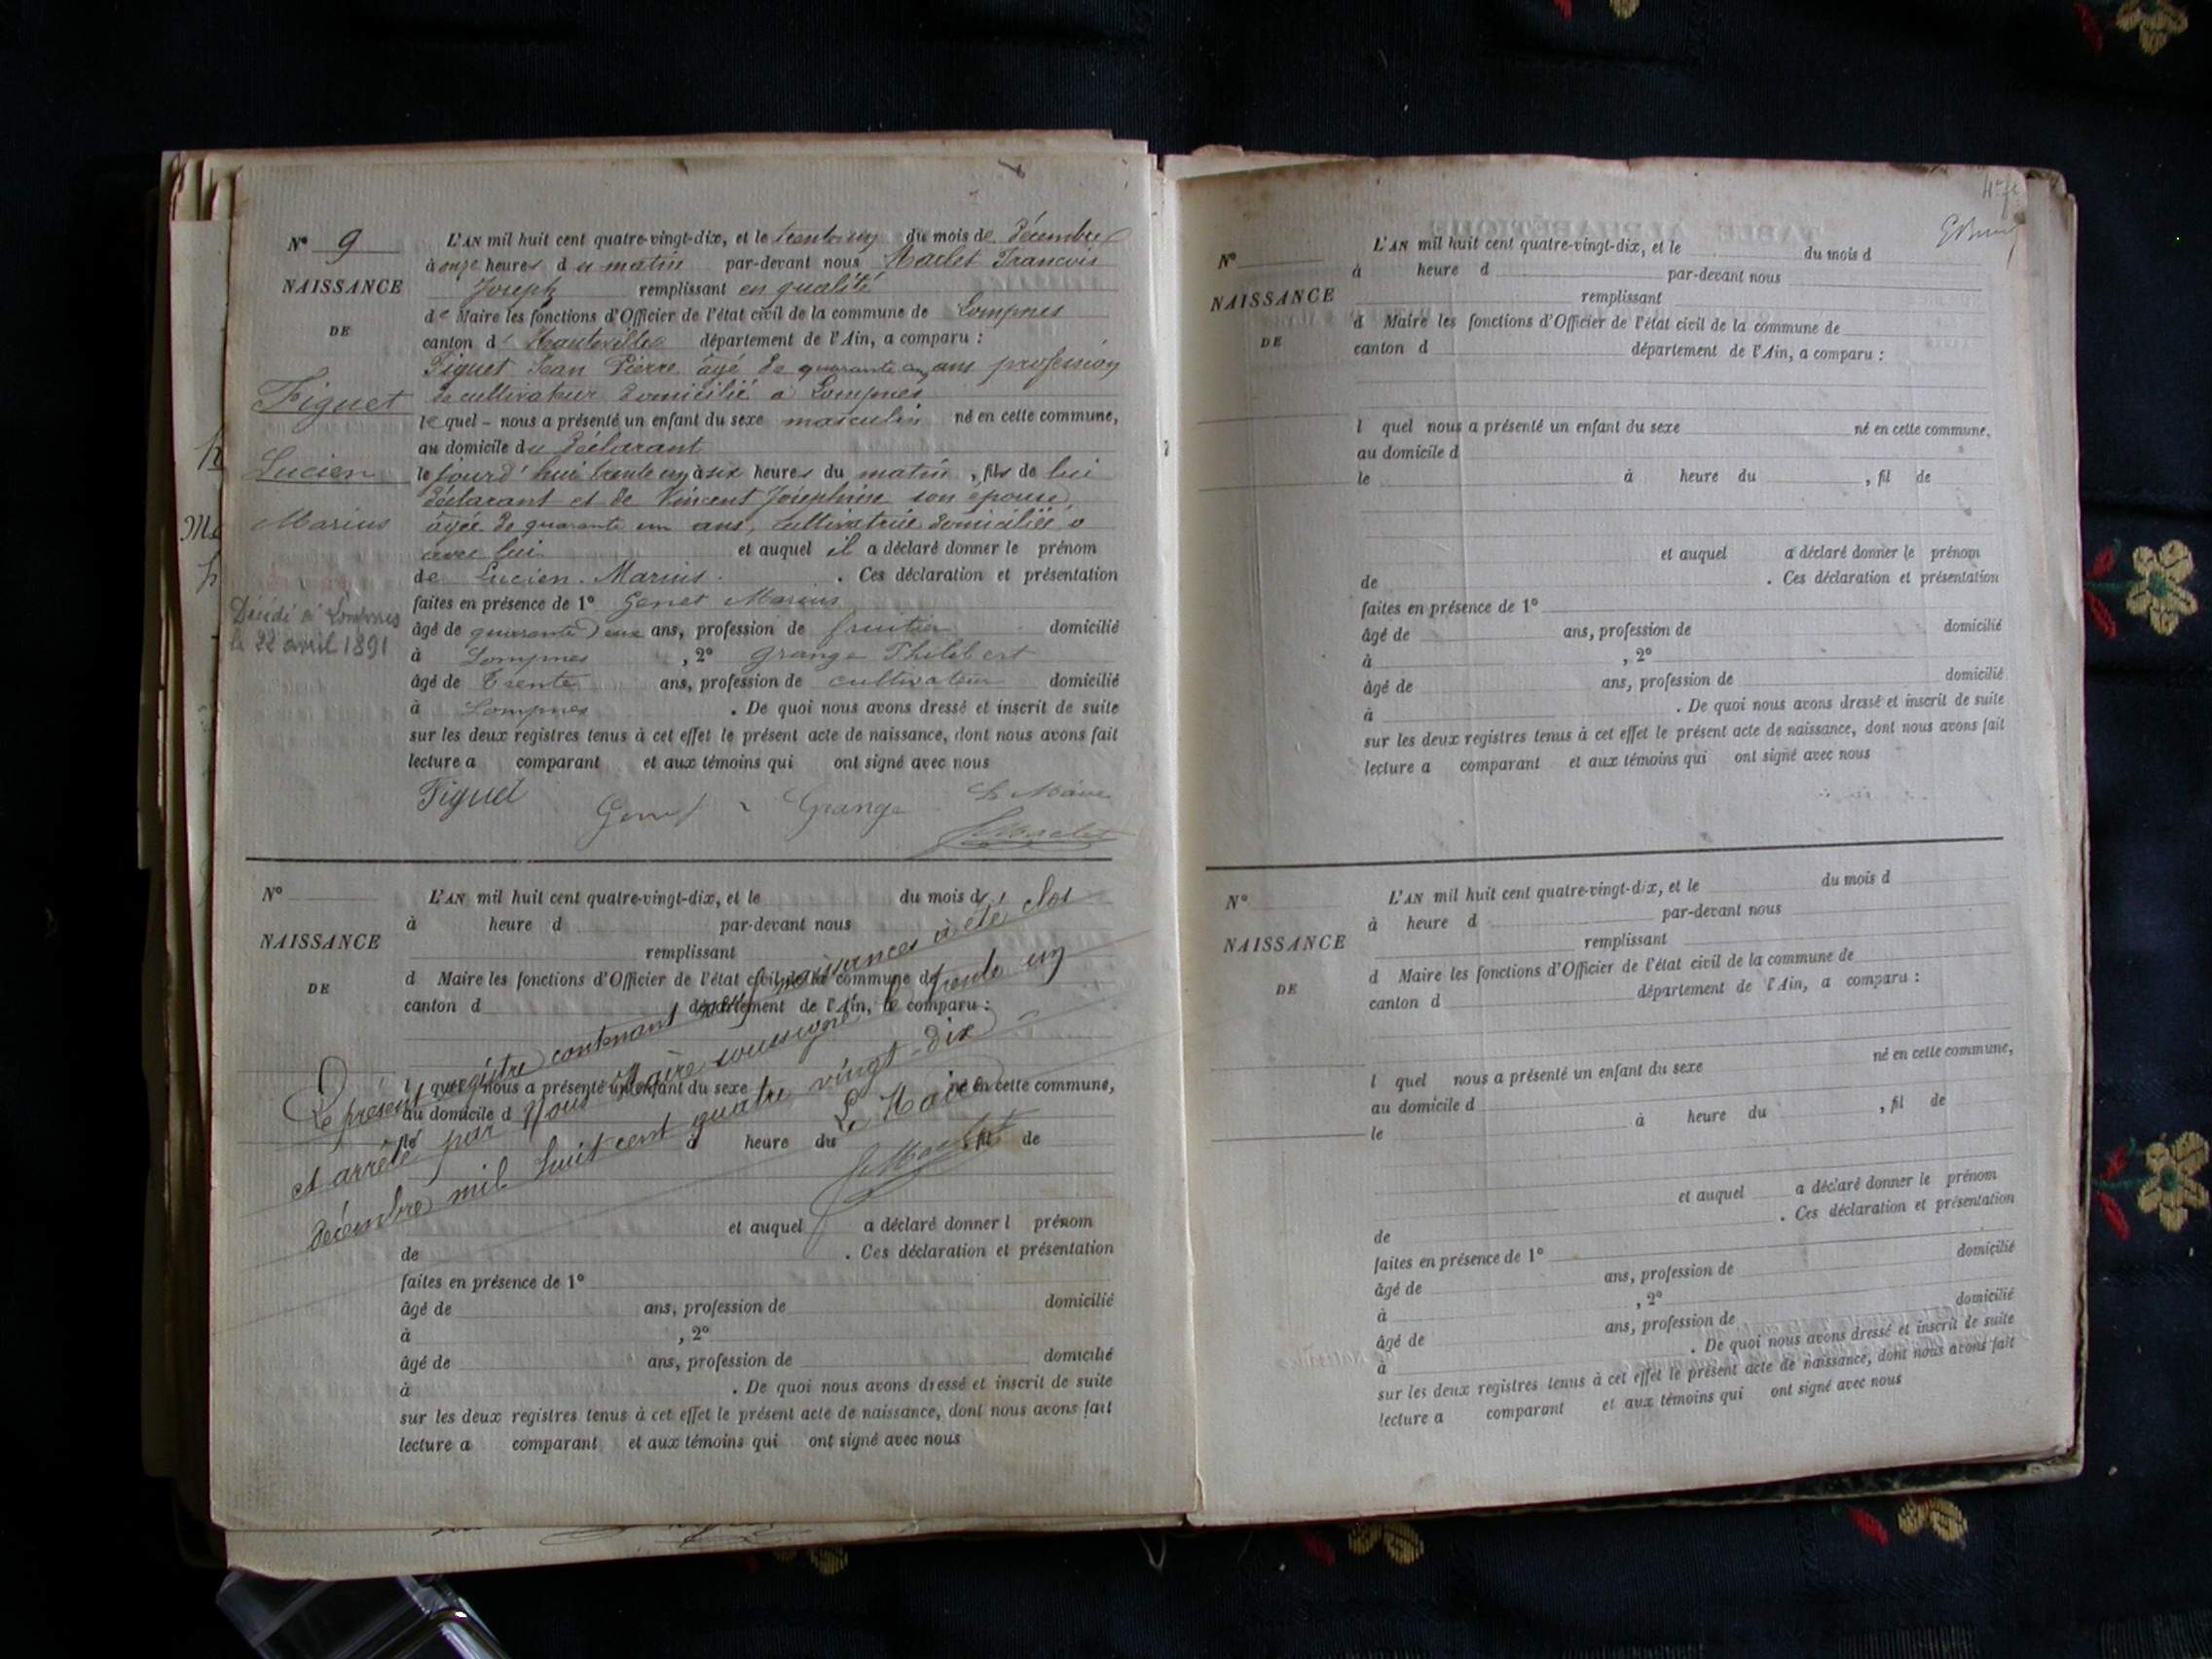 N° 9
NAISSANCE
DE
Figuet
Lucien
Marius
Décédé à Lompnes
le 22 avril 1891
L'AN mil huit cent quatre-vingt-dix, et le trente un du mois de Décembre
à onze heures du matin par-devant nous Maclet François
Joseph remplissant en qualité
de Maire les fonctions d'Officier de l'état civil de la commune de Lompnes
canton d'Hauteville département de l'Ain, a comparu :
Figuet Jean Pierre âgé de quarante ans profession
de cultivateur domicilié à Lompnes
lequel nous a présenté un enfant du sexe masculin né en cette commune,
au domicile du déclarant
le jourd'hui trente un à six heures du matin, fils de lui
déclarant et de Vincent Joséphine son épouse
âgée de quarante un ans, cultivatrice domiciliée
avec lui et auquel il a déclaré donner le prénom
de Lucien Marius. Ces déclaration et présentation
faites en présence de 1° Genet Marius
âgé de quarante deux ans, profession de fruitier domicilié
à Lompnes, 2° Grange Philibert
âgé de Trente ans, profession de cultivateur domicilié
à Lompnes. De quoi nous avons dressé et inscrit de suite
sur les deux registres tenus à cet effet le présent acte de naissance, dont nous avons fait
lecture a comparant et aux témoins qui ont signé avec nous
Figuet Genet Grange Le Maire
Maclet
N°
NAISSANCE
DE
L'AN mil huit cent quatre-vingt-dix, et le du mois d
à heure d par-devant nous
remplissant
d Maire les fonctions d'Officier de l'état civil de la commune de
canton d département de l'Ain, a comparu :
l quel nous a présenté un enfant du sexe né en cette commune,
au domicile d
le à heure du , fil de
et auquel a déclaré donner l prénom
de . Ces déclaration et présentation
faites en présence de 1°
âgé de ans, profession de domicilié
à , 2°
âgé de ans, profession de domicilié
à . De quoi nous avons dressé et inscrit de suite
sur les deux registres tenus à cet effet le présent acte de naissance, dont nous avons fait
lecture a comparant et aux témoins qui ont signé avec nous
Le présent registre contenant neuf naissances a été clos
et arrêté par Nous Maire soussigné le trente un
décembre mil huit cent quatre vingt-dix
Le Maire
Maclet
N°
NAISSANCE
DE
L'AN mil huit cent quatre-vingt-dix, et le du mois d
à heure d par-devant nous
remplissant
d Maire les fonctions d'Officier de l'état civil de la commune de
canton d département de l'Ain, a comparu :
l quel nous a présenté un enfant du sexe né en cette commune,
au domicile d
le à heure du , fil de
et auquel a déclaré donner le prénom
de . Ces déclaration et présentation
faites en présence de 1°
âgé de ans, profession de domicilié
à , 2°
âgé de ans, profession de domicilié
à . De quoi nous avons dressé et inscrit de suite
sur les deux registres tenus à cet effet le présent acte de naissance, dont nous avons fait
lecture a comparant et aux témoins qui ont signé avec nous
N°
NAISSANCE
DE
L'AN mil huit cent quatre-vingt-dix, et le du mois d
à heure d par-devant nous
remplissant
d Maire les fonctions d'Officier de l'état civil de la commune de
canton d département de l'Ain, a comparu :
l quel nous a présenté un enfant du sexe né en cette commune,
au domicile d
le à heure du , fil de
et auquel a déclaré donner le prénom
de . Ces déclaration et présentation
faites en présence de 1°
âgé de ans, profession de domicilié
à , 2°
âgé de ans, profession de domicilié
à . De quoi nous avons dressé et inscrit de suite
sur les deux registres tenus à cet effet le présent acte de naissance, dont nous avons fait
lecture a comparant et aux témoins qui ont signé avec nous